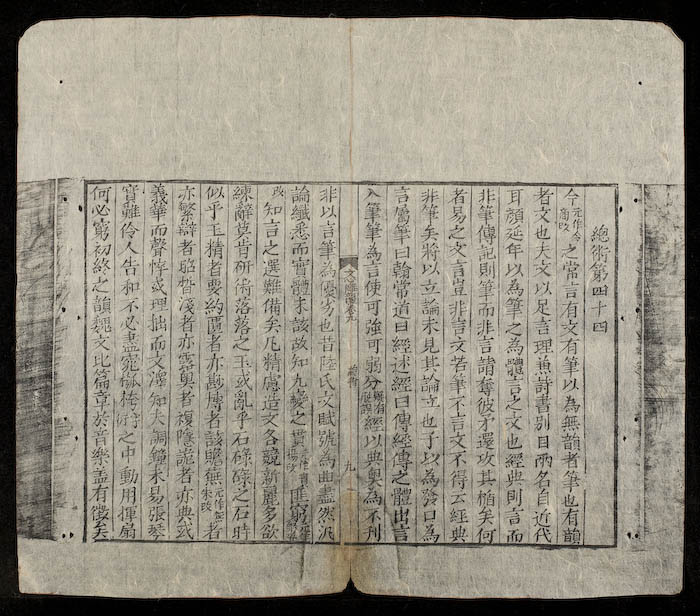 總術第四十四
今元作令商改之常言有文有筆以為無韻者筆也有韻
者文也夫文以足言理兼詩書别目兩名自近代
耳顔延年以為筆之為體言之文也經典則言而
非筆傳記則筆而非言請奪彼矛還攻其楯矣何
者易之文言豈非言文若筆不言文不得云經典
非筆矣將以立論未見其論立也予以為發口為
言屬筆曰翰常道曰經述經曰傳經傳之體出言
入筆筆為言使可強可弱分經以典奥為不刊
文心雕龍卷九
總術
九
非以言筆為優劣也昔陸氏文賦號為曲盡然汎
論纖悉而實體未該故知九變之貫匪窮
知言之選難備矣凡精慮造文各競新麗多欲
練辭莫肯研術落落之玉或亂乎石碌碌之石時
似乎玉精者要約匱者亦尠博者該贍蕪元作無朱改者
亦繁辯者昭晳淺者亦露奥者複隱詭者亦典或
義華而聲悴或理拙而文澤知夫調鐘未易張琴
實難伶人告和不必盡窕槬之中動用揮扇
何必窮初終之韻魏文比篇章於音樂蓋有徵矣